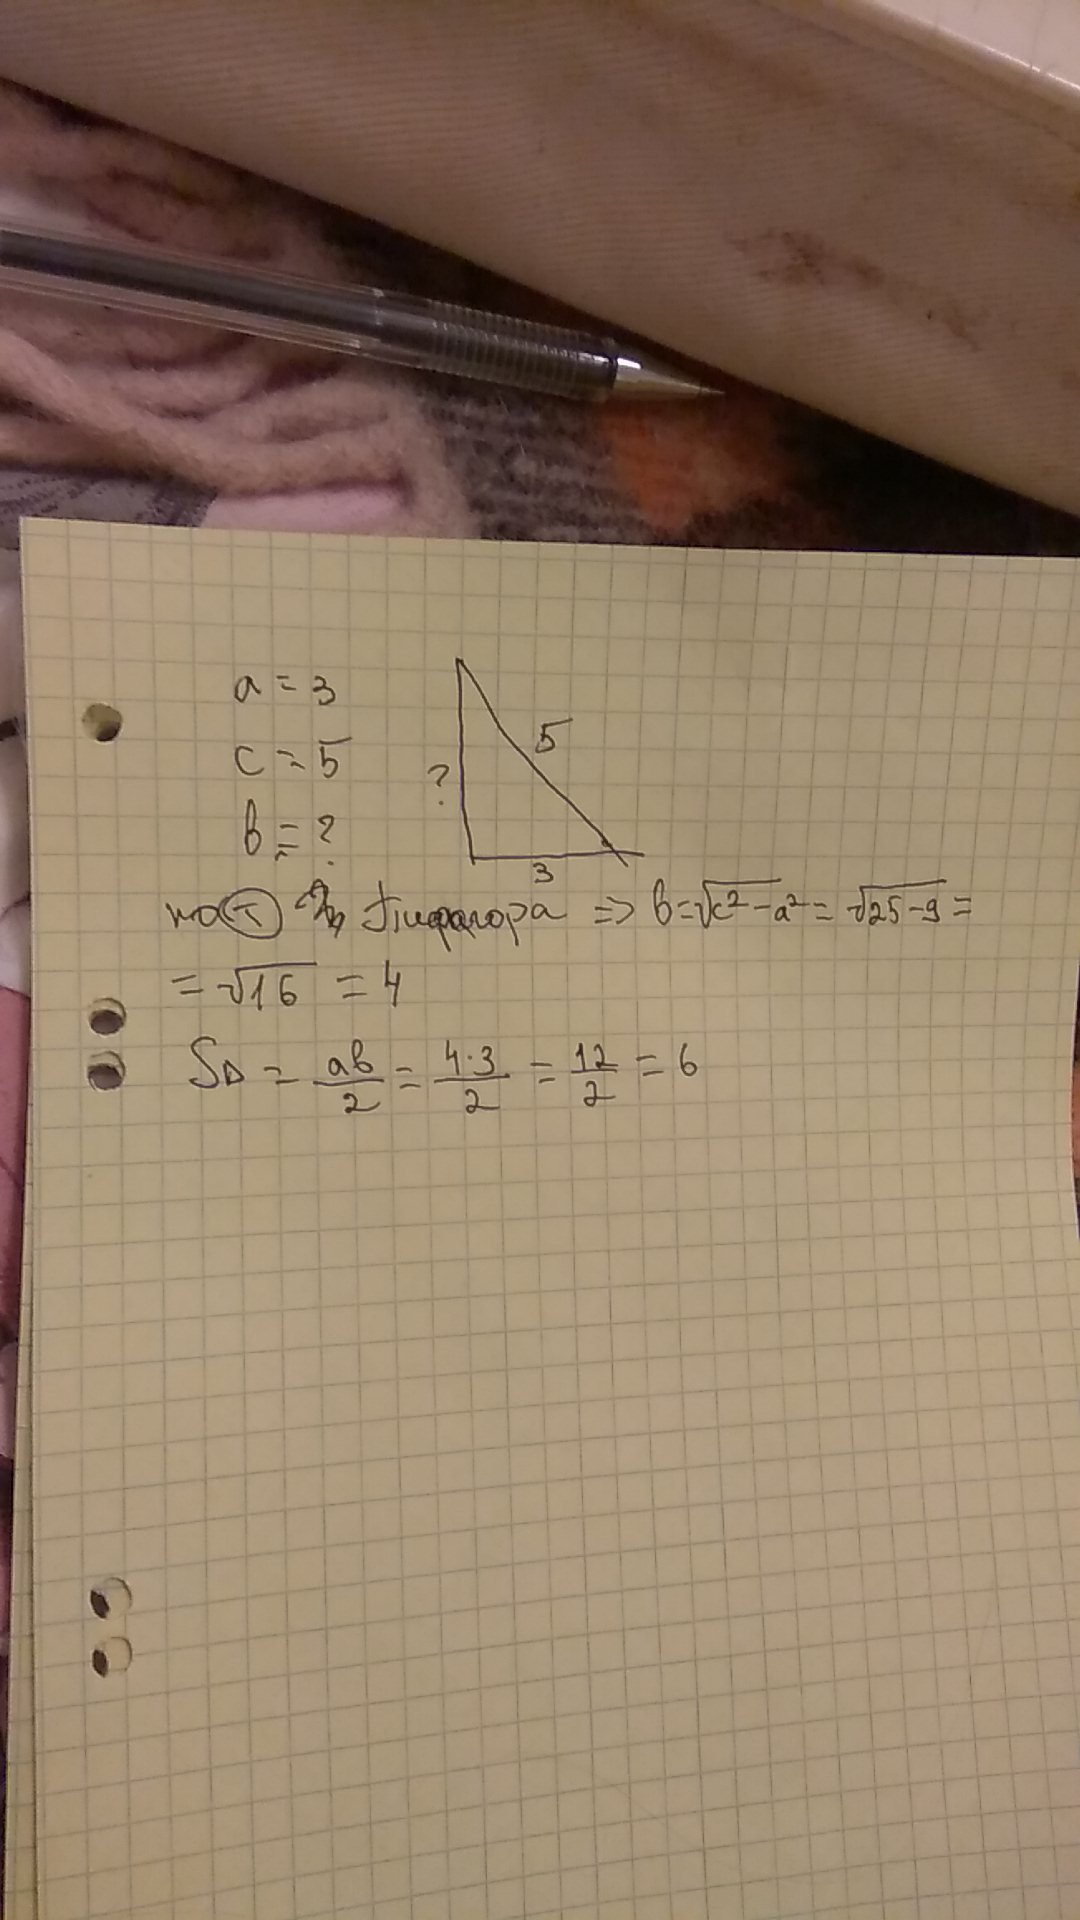 a = 3
c = 5
b = ?
5
?
3
по Т Пифагора => b = √c² - a² = √25-9 =
= √16 = 4
S△ = ab/2 = 4·3/2 = 12/2 = 6